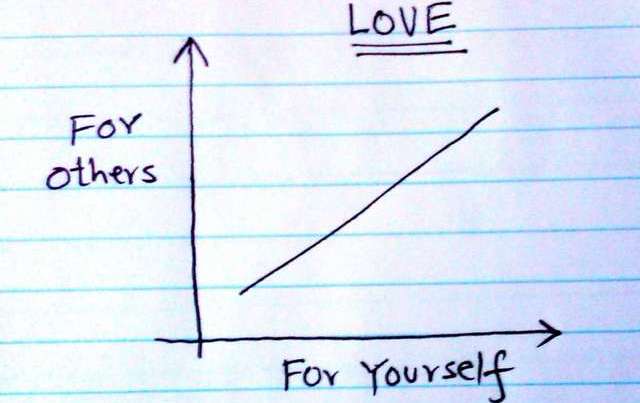 LOVE
For
others
For Yourself